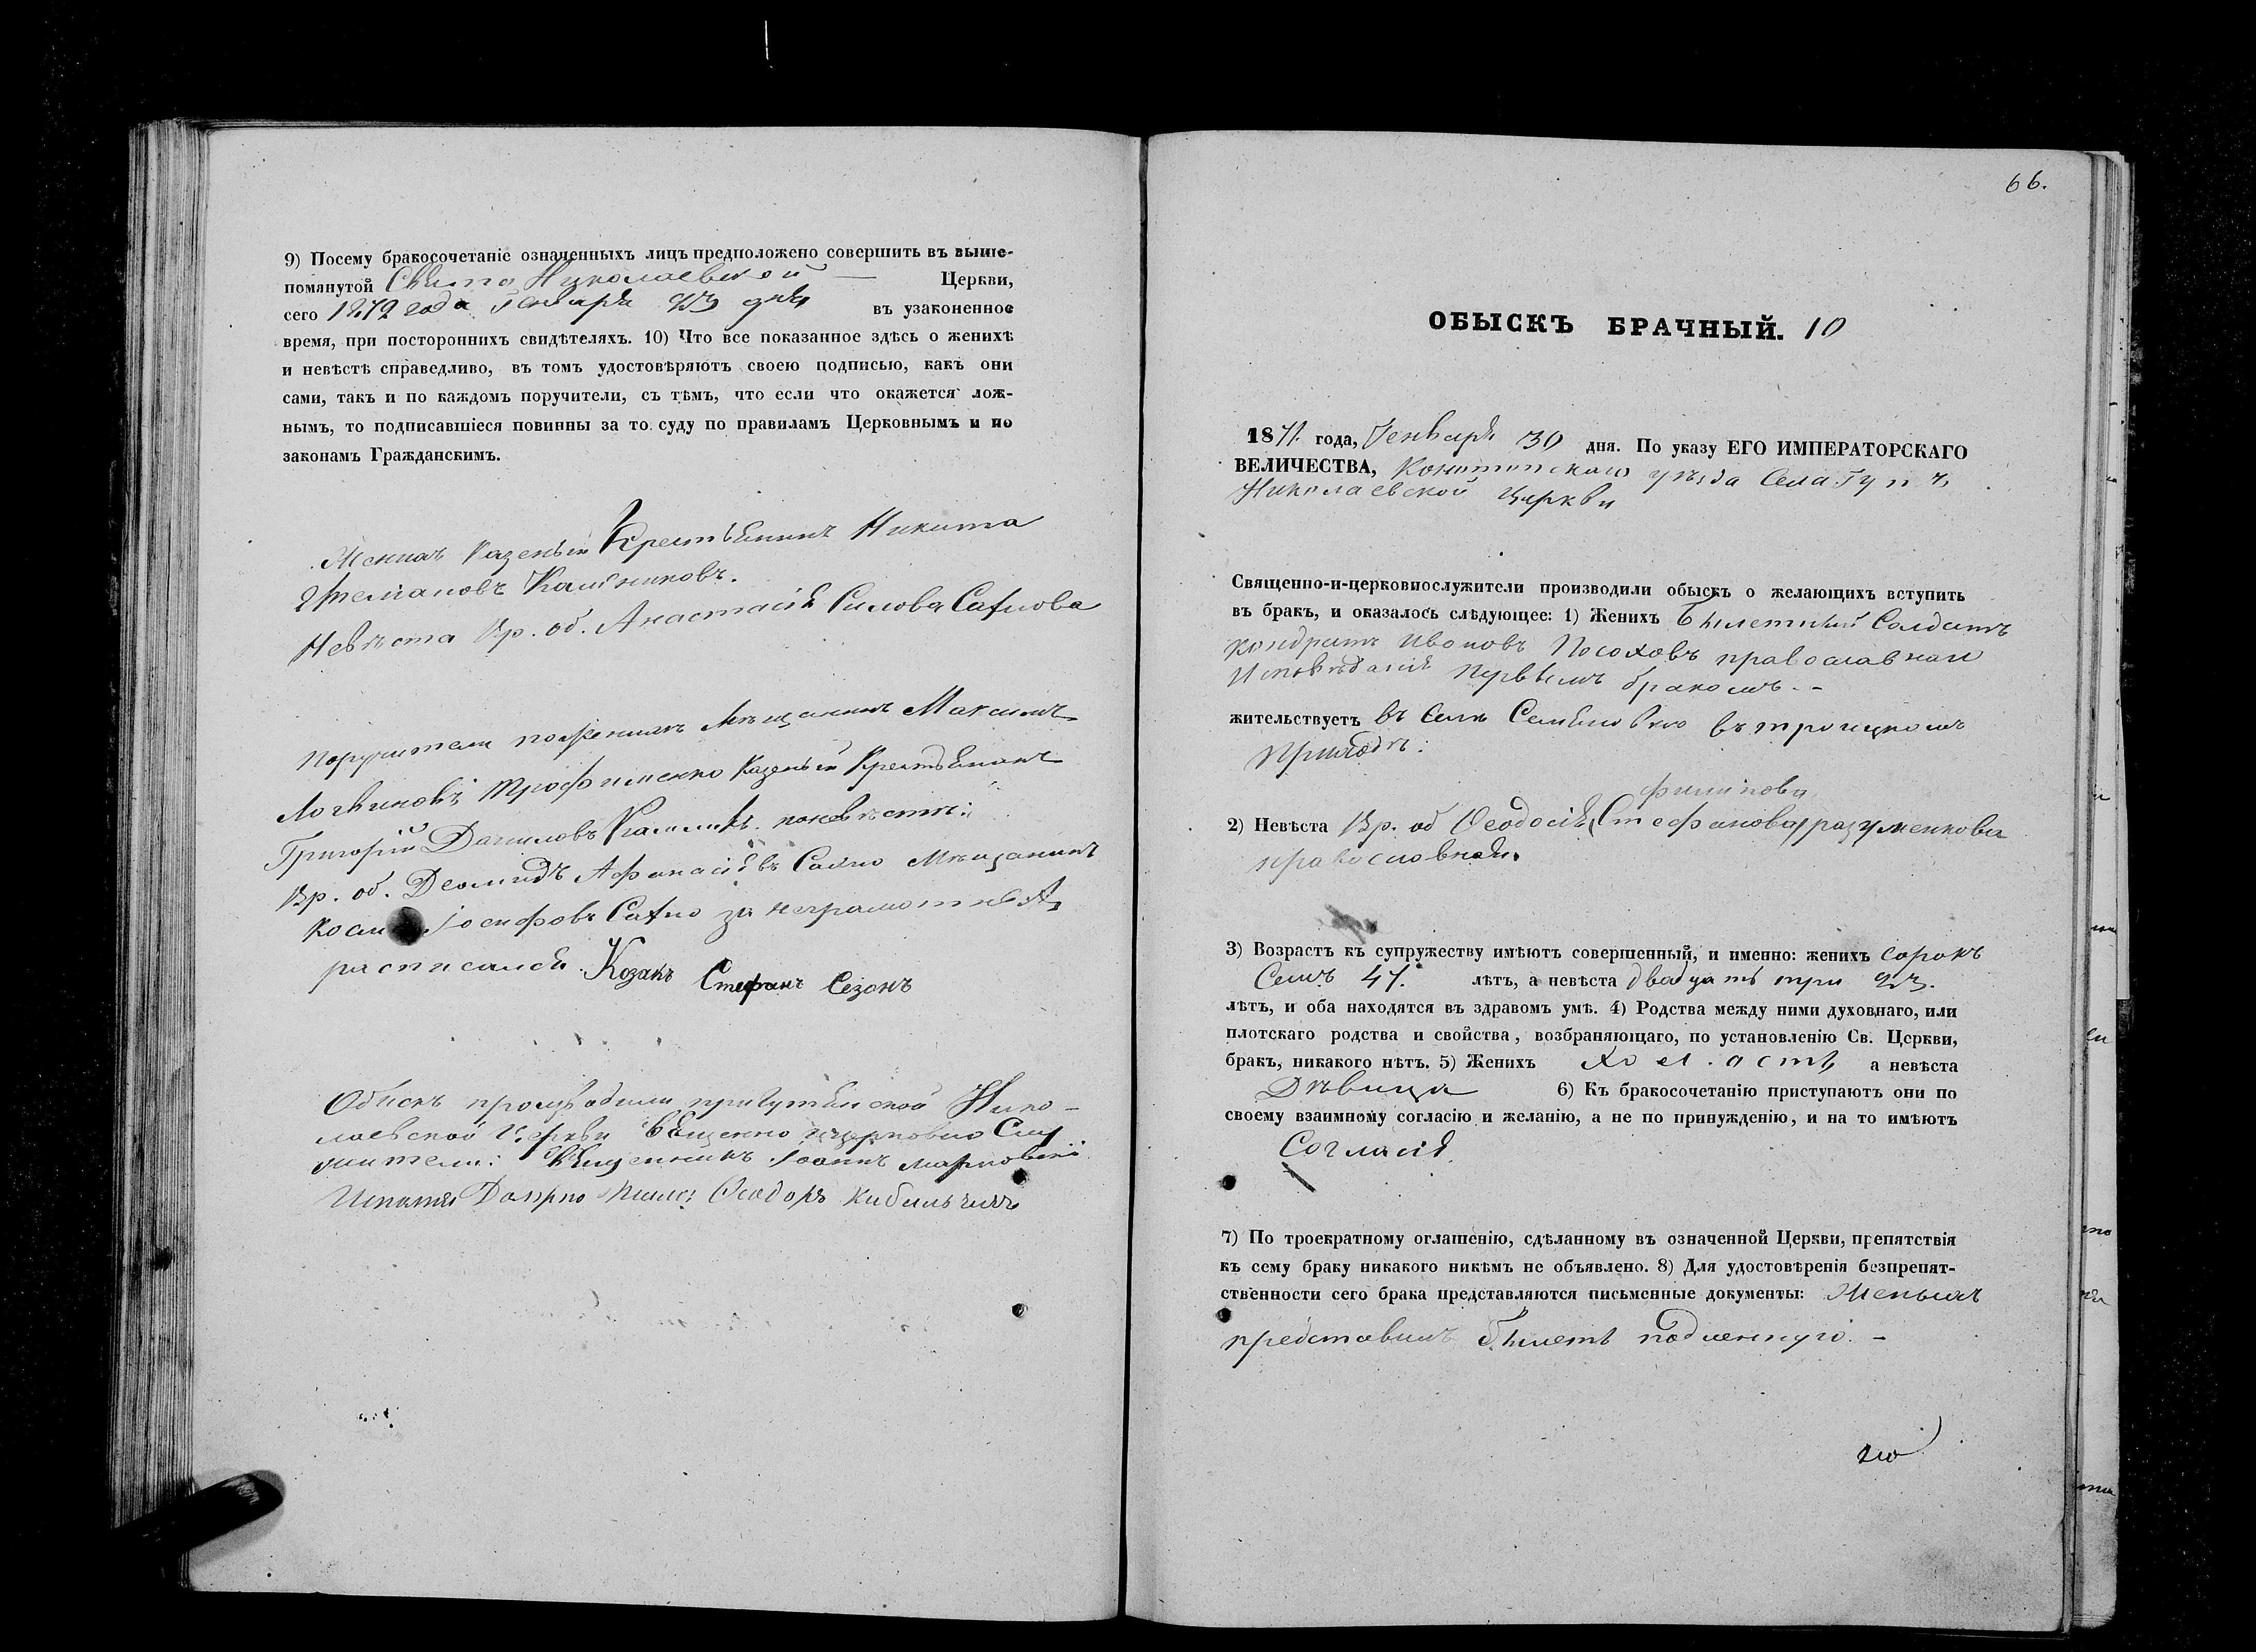 9) Посему бракосочетаніе означенныхъ лицъ предположено совершить въ выше-
помянутой Свято Николаевской — Церкви,
сего 1872 года Генваря 23 дня въ узаконенное
время, при постороннихъ свидѣтеляхъ. 10) Что все показанное здѣсь о женихѣ
и невѣстѣ справедливо, въ томъ удостовѣряютъ своею подписью, какъ они
сами, такъ и по каждомъ поручители, съ тѣмъ, что если что окажется лож-
нымъ, то подписавшіеся повинны за то суду по правиламъ Церковнымъ и по
законамъ Гражданскимъ.
Женихъ Казеный Крестьянинъ Никита
Невѣста Кр. об. Анастасія Силова Сахнова
Поручители по женихѣ Мѣщанинъ Максимъ
Логвиновъ Трофименко Казеный Крестьянинъ
Григорій Даниловъ по невѣсте:
Кр. об. Деомидъ Афанасіевъ Сахно Мѣщанинъ
Іосифовъ Сахно за неграмотныхъ
росписался Козакъ Стефанъ Сезонъ
Обискъ производили Нико-
лаевской Церкви Священно и церковно Слу
жители: Священникъ Іоаннъ Марковскій
Феодоръ Кибальчичъ
66.
ОБЫСКЪ БРАЧНЫЙ. 10
1871. года, Генваря 30 дня. По указу ЕГО ИМПЕРАТОРСКАГО
ВЕЛИЧЕСТВА, уѣзда Села
Николаевской Церкви
Священно-и-церковнослужители производили обыскъ о желающихъ вступить
въ бракъ, и оказалось слѣдующее: 1) Женихъ Билетный Солдатъ
Кондратъ Ивановъ Посоховъ православнаго
Исповѣданія первымъ бракомъ. -
жительствуетъ въ Селѣ въ троицкомъ
Приходѣ:
филипова
2) Невѣста Кр. об Феодосія Стефанова разуменкова
православная.
3) Возрастъ къ супружеству имѣютъ совершенный, и именно: женихъ сорокъ
Семъ 47. лѣтъ, а невѣста двадцать три 23.
лѣтъ, и оба находятся въ здравомъ умѣ. 4) Родства между ними духовнаго, или
плотскаго родства и свойства, возбраняющаго, по установленію Св. Церкви,
бракъ, никакого нѣтъ. 5) Женихъ холастъ а невѣста
Дѣвица 6) Къ бракосочетанію приступаютъ они по
своему взаимному согласію и желанію, а не по принужденію, и на то имѣютъ
Согласія
7) По троекратному оглашенію, сдѣланному въ означенной Церкви, препятствія
къ сему браку никакого никѣмъ не объявлено. 8) Для удостовѣренія безпрепят-
ственности сего брака представляются письменные документы: Женихъ
представилъ билетъ